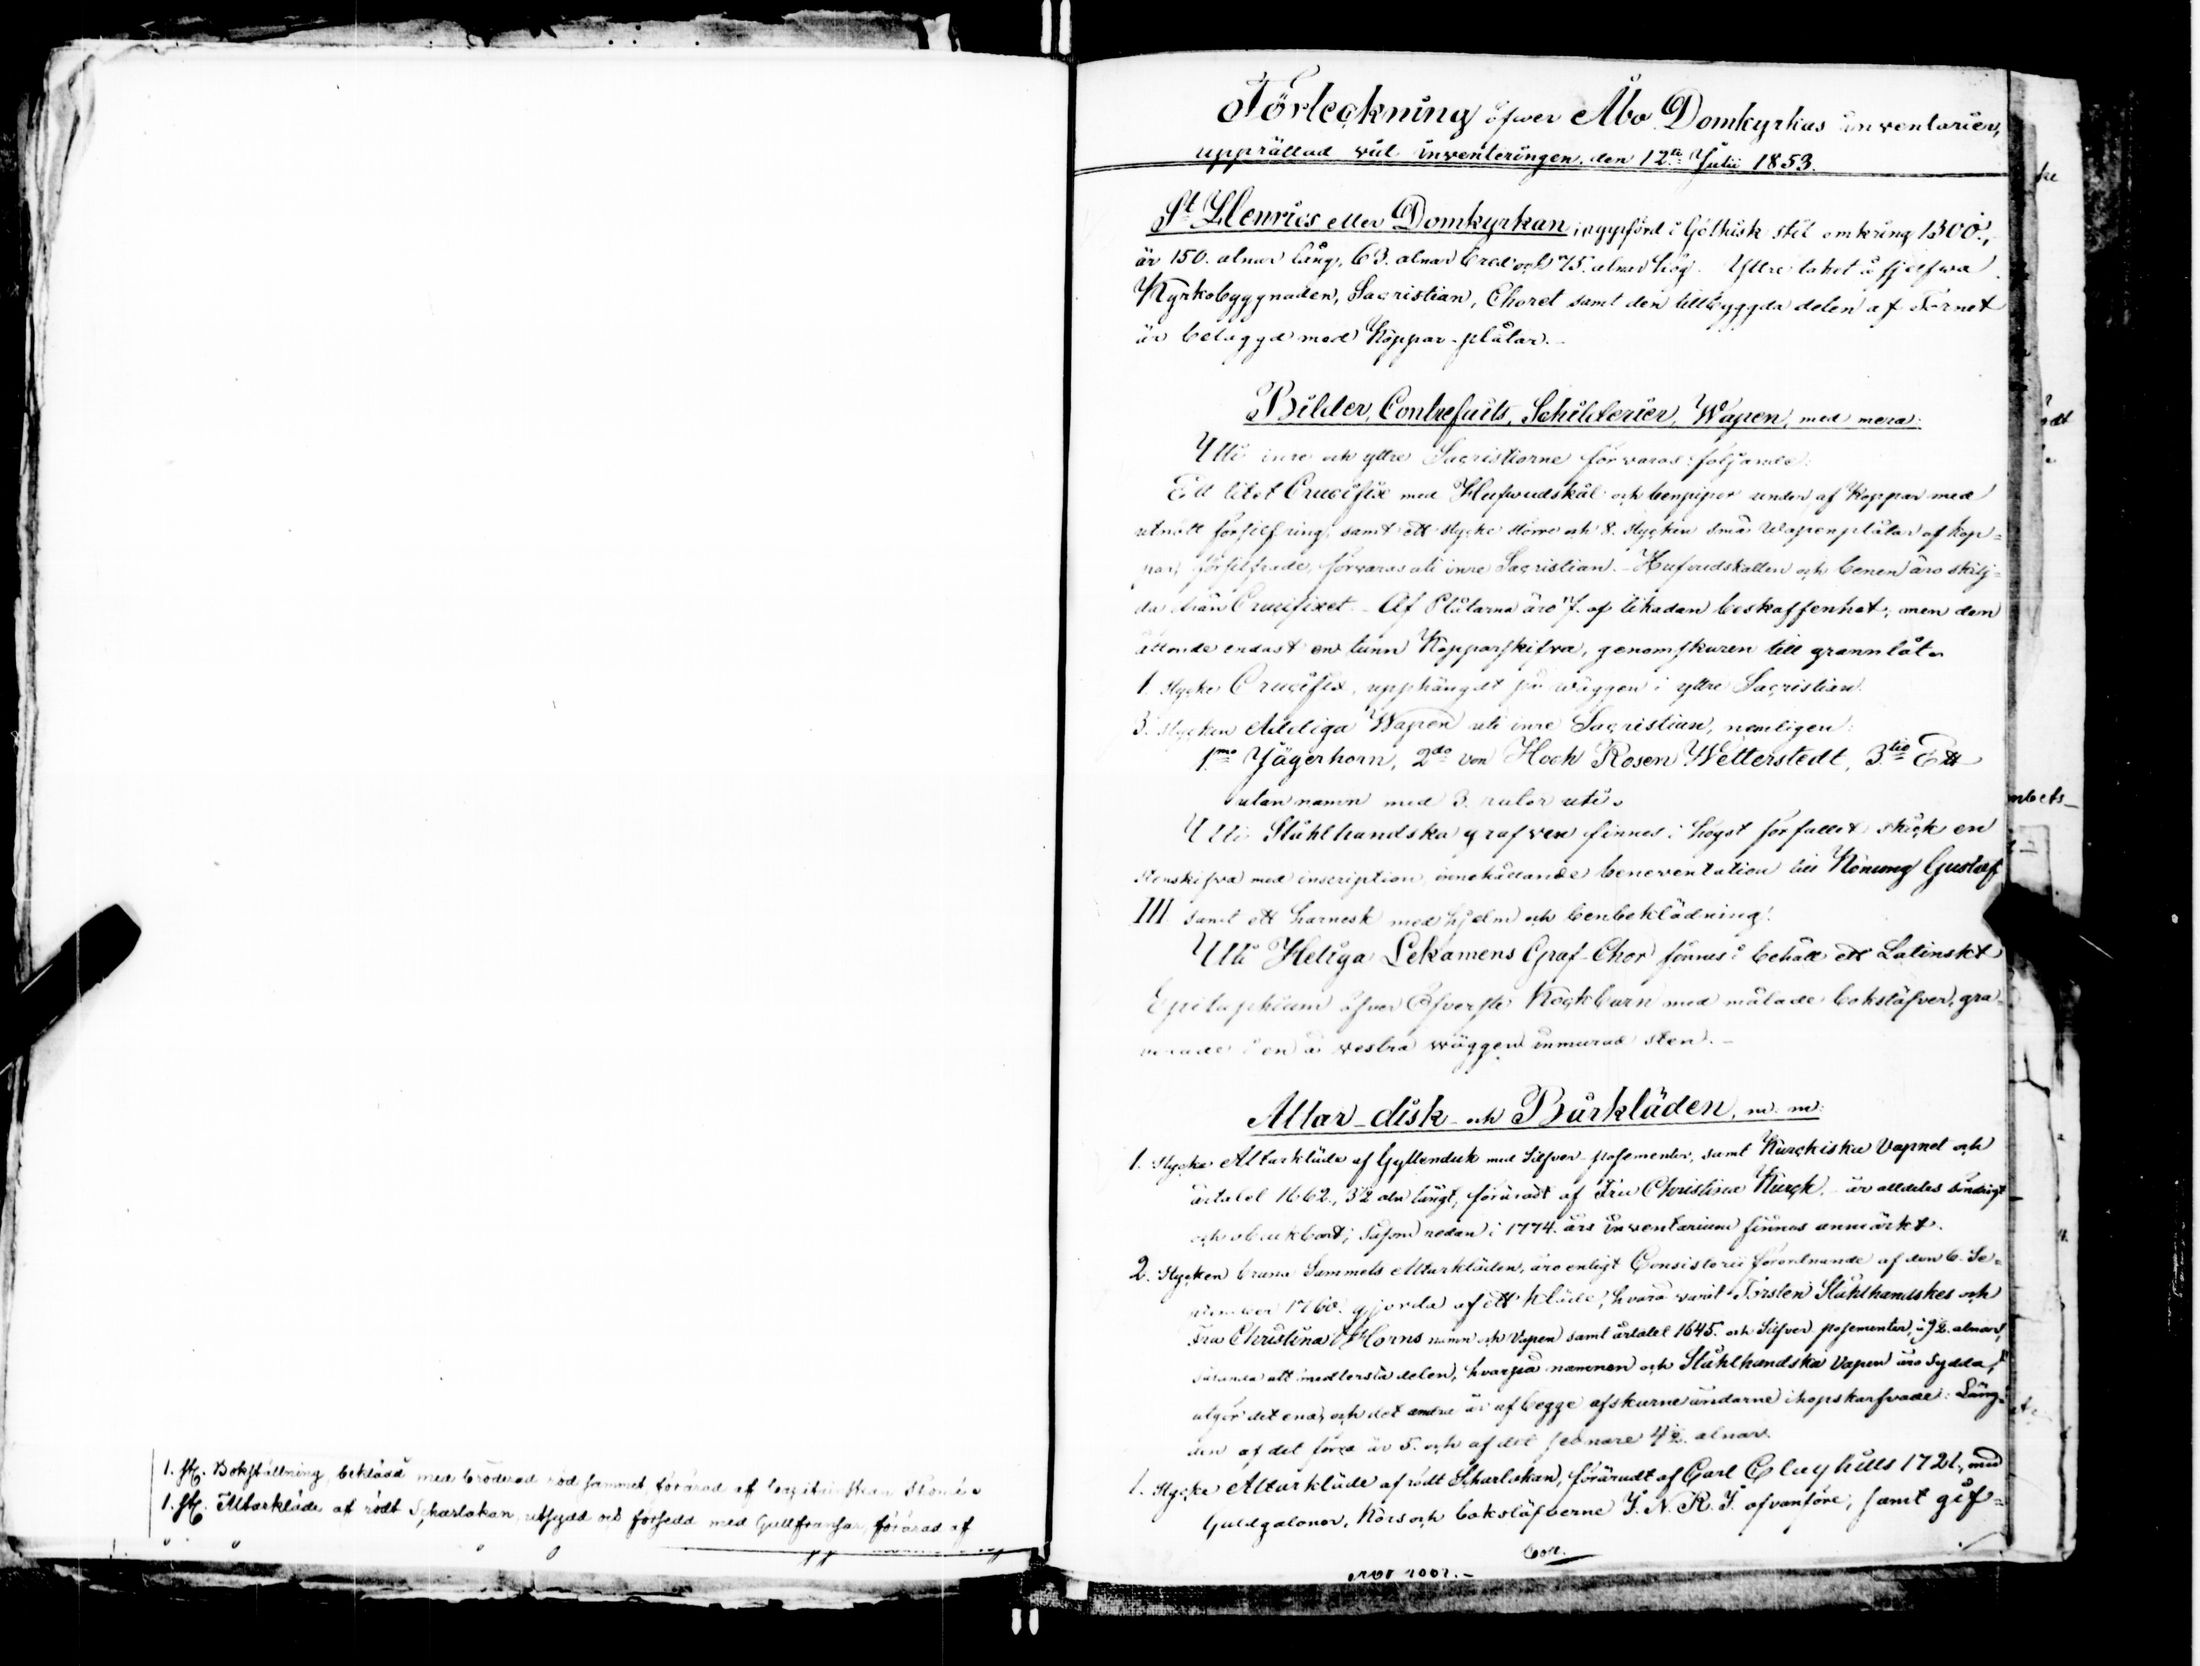 1. St. Bokställning, beklädd med broderad röd sammet förärad af
1. St. Altarkläde af rödt Scharlakan, utsydd och försedd med Gullfransar, förärad af
Förteckning öfwer Åbo Domkyrkas inventarier,
upprättad wid inventeringen den 12te Julii 1853.
St Henrics eller Domkyrkan, uppförd i Göthisk stil omkring 1300,
är 150. alnar lång, 63. alnar bred och 75. alnar hög. Yttre taket å sjelfwa
Kyrkobyggnaden, Sacristian, Choret samt den tillbyggda delen af Tornet
är belaggd med Koppar-plåtar.
Bilder, Contrefaits, Schilderier, Wapen, med mera.
Uti inre och yttre Sacristiorne förvaras följande:
Ett litet Crucifix med Hufwudskål och benpipor under af Koppar med
utnött försilfring, samt ett stycke större och 8. stycken små Wapenplåtar af kop=
par, försilfrade, förwaras uti inre Sacristian. Hufvudskallen och benen äro skilj=
da från Crucifixet. Af Plåtarna äro 7. af likadan beskaffenhet; men den
åttonde endast en tunn Kopparskifva, genomskuren till grannlåt.
1. stycke Crucifix, upphängdt på wäggen i yttre Sacristian.
3. stycken Adeliga Wapen uti inre Sacristian, nemligen:
1mo Jägerhorn, 2do von Hoch Rosen Wetterstedt, 3tio Ett
utan namn med 3. rutor uti.
Uti Stålhandska grafven finnes i högst förfallet skick en
stenskifva med inscription innehållande beneventation till Konung Gustaf
III samt ett harnesk med hjelm och benbeklädning.
Uti Heliga Lekamens Graf-Chor finnes i behåll ett Latinskt
Epitaphium öfver Öfverste Kockburn med målade bokstäfver, gra=
verade i en å vestra wäggen inmurad sten.
Altar-disk- och Bårkläden, m. m.
1. Stycke Altarkläde af Gyllenduk med Silfver-posementer, samt Kurckiska Vapnet och
årtalet 1662., 3½ aln långt, föräradt af Fru Christina Kurck, är alldeles söndrigt
och obrukbart; såsom redan i 1774. års Inventarium finnes anmärkt.
2. Stycken bruna Sammets Altarkläden, äro enligt Consistorii förordnande af den 6. Se=
ptember 1760. gjorda af ett kläde, hvarå varit Torsten Stålhandskes och
Fru Christina Horns namn och Vapen samt årtalet 1645. och Silfver posementer, à 9½. alnar,
sålunda att medlersta delen, hvarpå namnen och Stålhandska Vapen äro sydda,
utgör det ena, och det andra är af begge afskurne ändarne ihopskarfvade: Läng=
den af det förra är 5. och af det senare 4½. alnar.
1. Stycke Altarkläde af rödt Scharlakan, föräradt af Carl Clayhills 1721, med
Guldgaloner, Kors och bokstäfverne J. N. R. J. ofvanföre; samt gif=